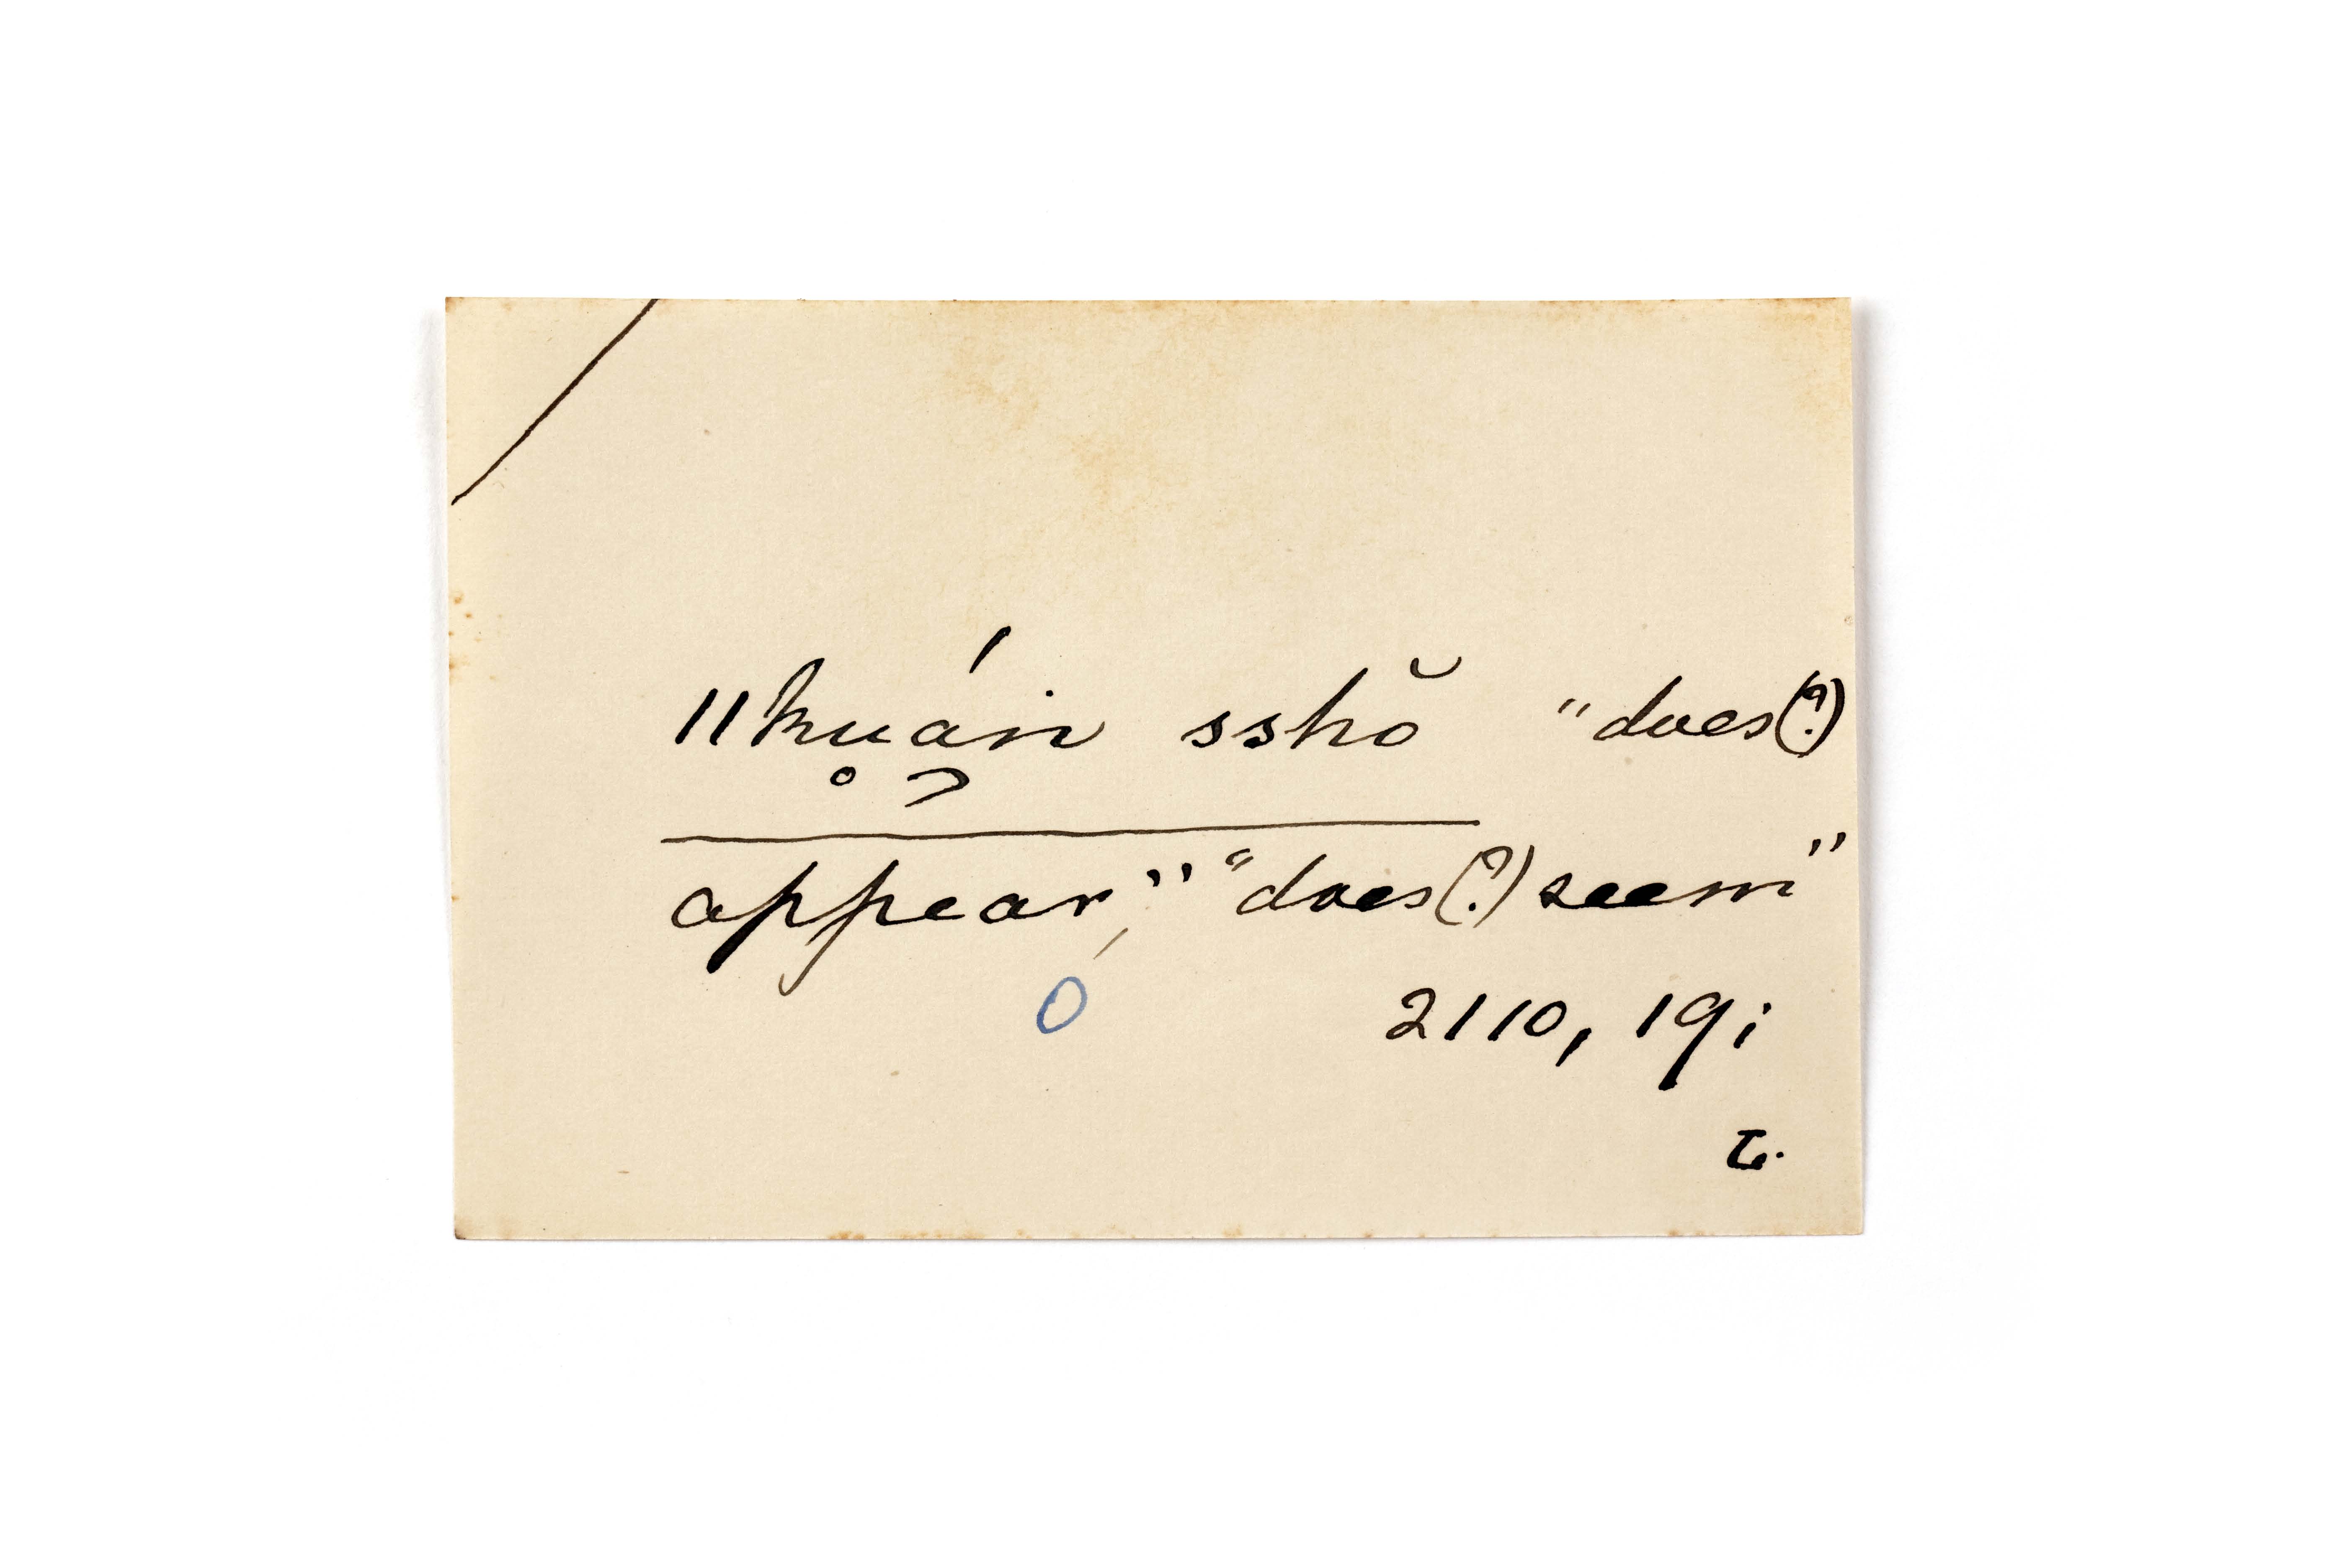 ǁku̥a̡ń sshŏ "does(?)
appear," "does(?) seem"
2110, 19;
L.